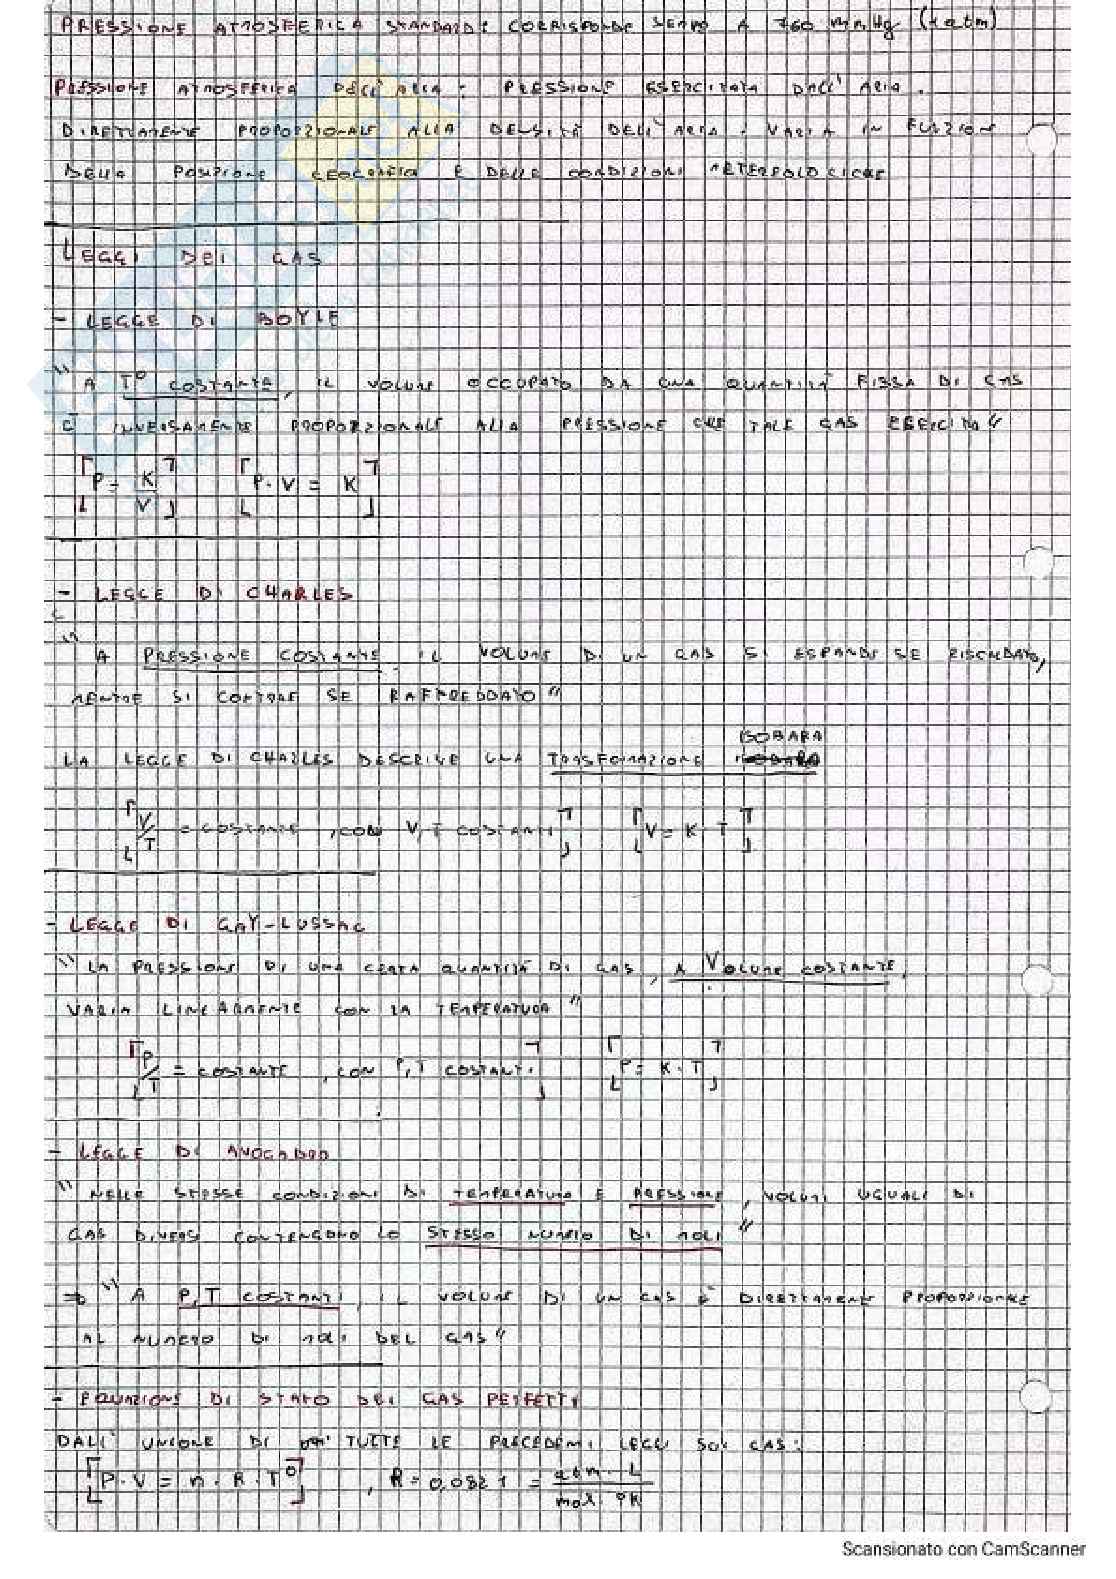 PRESSIONE ATMOSFERICA STANDARD: CORRISPONDE SEMPO A 760 mmHg (1 atm)
PRESSIONE ATMOSFERICA DELL'ARIA: PRESSIONE ESERCITATA DALL'ARIA.
DIRETTAMENTE PROPORZIONALE ALLA DENSITÀ DELL'ARIA: VARIA IN FUNZION
DELLA POSIZIONE GEOGRAFICA E DELLE CONDIZIONI METEREOLOGICHE
LEGGI DEI GAS
- LEGGE DI BOYLE
"A T° COSTANTE, IL VOLUME OCCUPATO DA UNA QUANTITÀ FISSA DI GAS
È INVERSAMENTE PROPORZIONALE ALLA PRESSIONE CHE TALE GAS ESERCITA"
[P = K/V] [P · V = K]
- LEGGE DI CHARLES
"A PRESSIONE COSTANTE, IL VOLUME DI UN GAS SI ESPANDE SE RISCALDATO,
MENTRE SI CONTRAE SE RAFFREDDATO"
LA LEGGE DI CHARLES DESCRIVE UNA TRASFORMAZIONE ISOBARA
[V/T = COSTANTE, CON V, T COSTANTI] [V = K · T]
- LEGGE DI GAY-LUSSAC
"LA PRESSIONE DI UNA CERTA QUANTITÀ DI GAS, A VOLUME COSTANTE,
VARIA LINEARMENTE CON LA TEMPERATURA"
[P/T = COSTANTE, CON P, T COSTANTI] [P = K · T]
- LEGGE DI AVOGADRO
"NELLE STESSE CONDIZIONI DI TEMPERATURA E PRESSIONE, VOLUMI UGUALI DI
GAS DIVERSI CONTENGONO LO STESSO NUMERO DI MOLI"
⇒ "A P, T COSTANTI, IL VOLUME DI UN GAS È DIRETTAMENTE PROPORZIONALE
AL NUMERO DI MOLI DEL GAS"
- EQUAZIONE DI STATO DEI GAS PERFETTI
DALL'UNIONE DI TUTTE LE PRECEDENTI LEGGI SUI GAS:
[P · V = n · R · T°], R = 0,0821 = atm · L / mol · °K
Scansionato con CamScanner